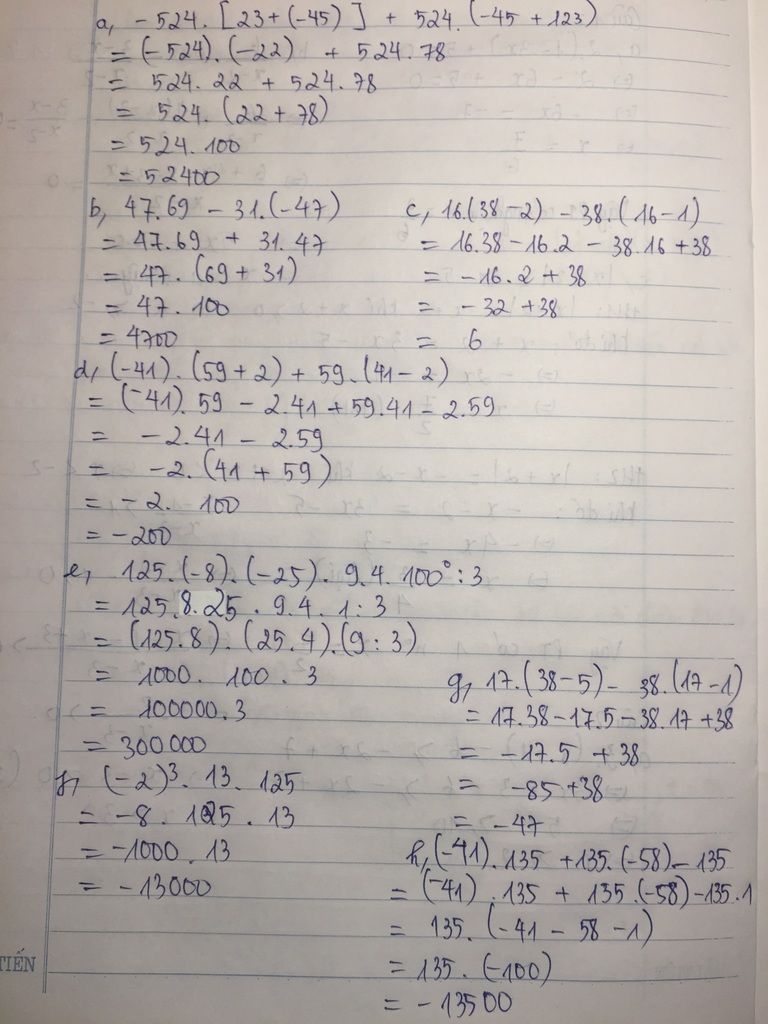 a, -524. [23+(-45)] + 524. (-45 + 123)
= (-524). (-22) + 524.78
= 524. 22 + 524.78
= 524. (22+78)
= 524. 100
= 52400
b, 47.69 - 31.(-47)
= 47.69 + 31.47
= 47. (69 + 31)
= 47. 100
= 4700
c, 16.(38-2) - 38.(16-1)
= 16.38-16.2 - 38.16 +38
= -16.2 +38
= -32 +38
= 6
d, (-41). (59+2) + 59. (41-2)
= (-41). 59 - 2.41 + 59.41 - 2.59
= -2.41 - 2.59
= -2. (41 + 59)
= -2. 100
= -200
e, 125.(-8).(-25). 9.4. 100°:3
= 125.8.25. 9.4. 1:3
= (125.8). (25.4).(9:3)
= 1000. 100. 3
= 100000.3
= 300000
f, (-2)³. 13. 125
= -8. 125. 13
= -1000. 13
= -13000
g, 17.(38-5)- 38.(17-1)
= 17.38-17.5-38.17+38
= -17.5 +38
= -85 +38
= -47
h, (-41). 135 +135.(-58)-135
= (-41). 135 + 135.(-58)-135.1
= 135. (-41 - 58 -1)
= 135. (-100)
= -13500
TIẾN